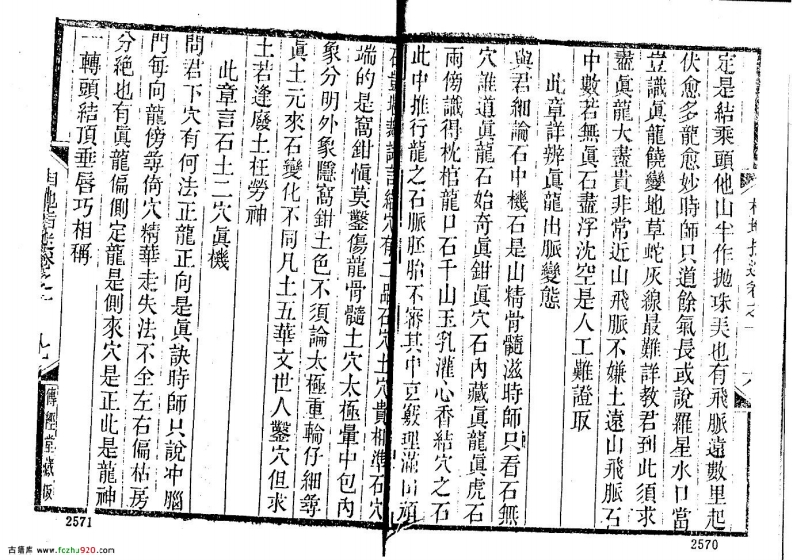 定是結乘頭他山半作拋珠美也有飛脈遠數里起
伏愈多龍愈妙時師只道餘氣長或說羅星水口當
豈識真龍饒變地草蛇灰線最難詳教君到此須求
盡真龍大盡貴非常近山飛脈不嫌土遠山飛脈石
中數若無真石盡浮沈空是人工難證取
此章詳辨真龍出脈變態
與君細論石中機石是山精骨髓滋時師只看石無
穴誰道真龍石始奇真鉗真穴石內藏真龍真虎石
兩傍識得枕棺龍口石千山玉乳灌心香結穴之石
此中推行龍之石脈胚胎不審其中玄竅理滿山頑
穴有二品石穴土穴貴相準石穴
端的是窩鉗慎莫鑿傷龍骨髓土穴太極暈中包內
象分明外象隱窩鉗土色不須論太極重輪仔細尋
真土元來石變化不同凡土五華文世人鑿穴但求
土若逢廢土枉勞神
此章言石土二穴真機
問君下穴有何法正龍正向是真訣時師只說冲腦
門每向龍傍尋倚穴精華走失法不全左右偏枯房
分絕也有真龍偏側定龍是側來穴是正此是龍神
一轉頭結頂垂唇巧相稱
傳經堂藏版
2571
2570
古籍库 www.fczhu920.com